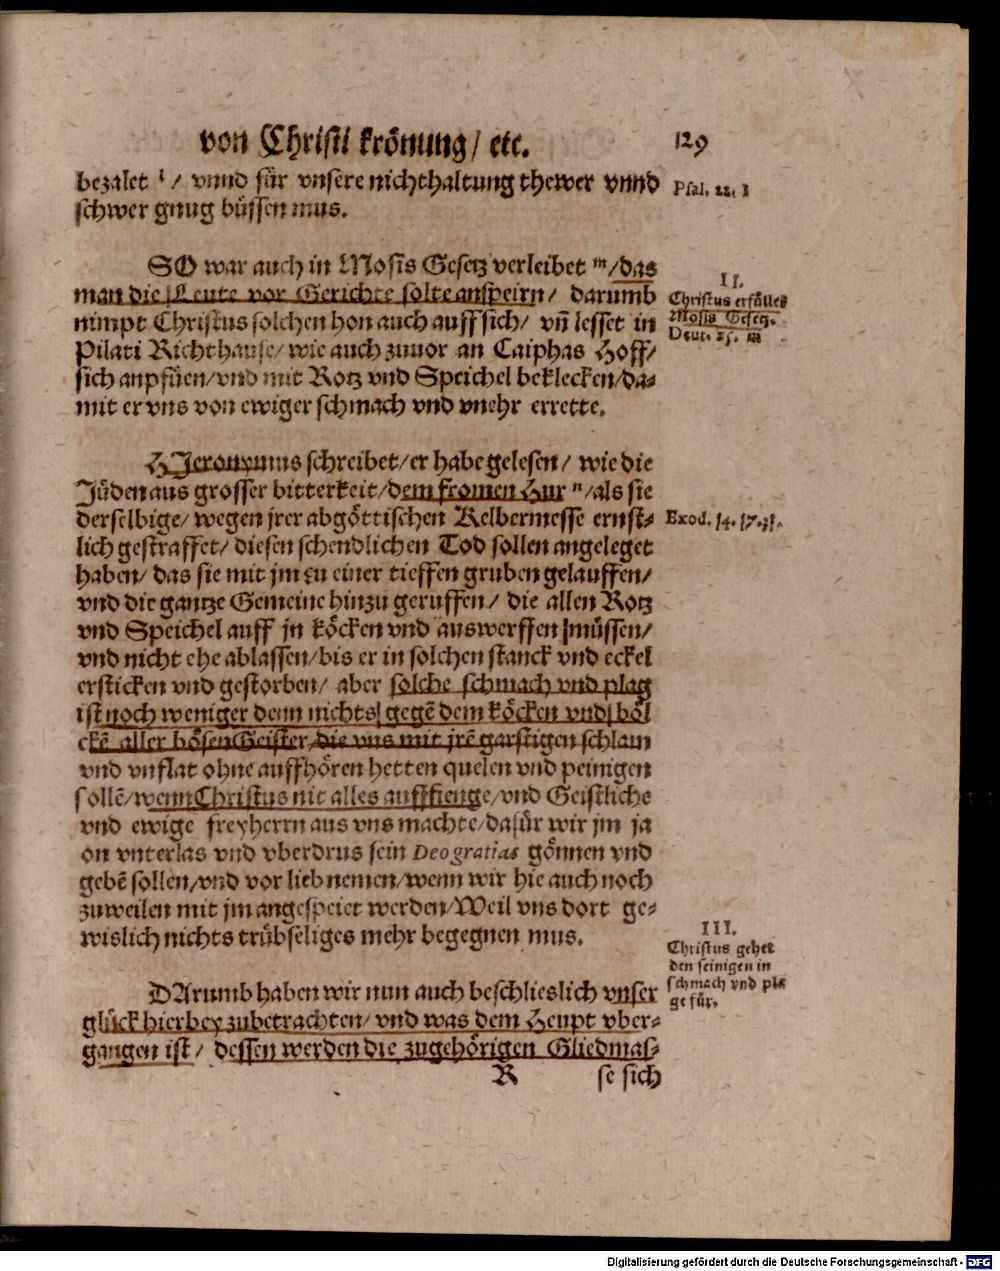 von Christi krönung/ etc. 129
bezalet l/ vnnd für vnsere nichthaltung thewer vnnd
schwer gnug büssen mus.
Psal. 22. l
SO war auch in Mosis Gesetz verleibet m/das
man die Leute vor Gerichte solte anspeirn/ darumb
nimpt Christus solchen hon auch auff sich/ vñ lesset in
Pilati Richthause/wie auch zuuor an Caiphas Hoff/
sich anpfüen/vnd mit Rotz vnd Speichel beklecken/da-
mit er vns von ewiger schmach vnd vnehr errette.
II.
Christus erfüllet
Mosis Gesetz.
Deut. 25. m
HJeronymus schreibet/er habe gelesen/ wie die
Jüden aus grosser bitterkeit/dem fromen Hur n/als sie
derselbige/ wegen jrer abgöttischen Kelbermesse ernst-
lich gestraffet/ diesen schendlichen Tod sollen angeleget
haben/ das sie mit jm zu einer tieffen gruben gelauffen/
vnd die gantze Gemeine hinzu geruffen/ die allen Rotz
vnd Speichel auff jn köcken vnd auswerffen müssen/
vnd nicht ehe ablassen/bis er in solchen stanck vnd eckel
ersticken vnd gestorben/ aber solche schmach vnd plag
ist noch weniger denn nichts gegē dem köcken vnd böl
ckē aller bösen Geister/die vns mit jrē garstigen schlam
vnd vnflat ohne auffhören hetten quelen vnd peinigen
sollē/wenn Christus nit alles auffienge/vnd Geistliche
vnd ewige freyherrn aus vns machte/dafür wir jm ja
on vnterlas vnd vberdrus sein Deo gratias gönnen vnd
gebē sollen/vnd vor lieb nemen/wenn wir hie auch noch
zuweilen mit jm angespeiet werden/Weil vns dort ge-
wislich nichts trübseliges mehr begegnen mus.
Exod. 14. 17.
III.
Christus gehet
den seinigen in
schmach vnd pla
ge für.
DArumb haben wir nun auch beschlieslich vnser
glück hierbey zubetrachten/ vnd was dem Heupt vber-
gangen ist/ dessen werden die zugehörigen Gliedmas-
R se sich
Digitalisierung gefördert durch die Deutsche Forschungsgemeinschaft - DFG